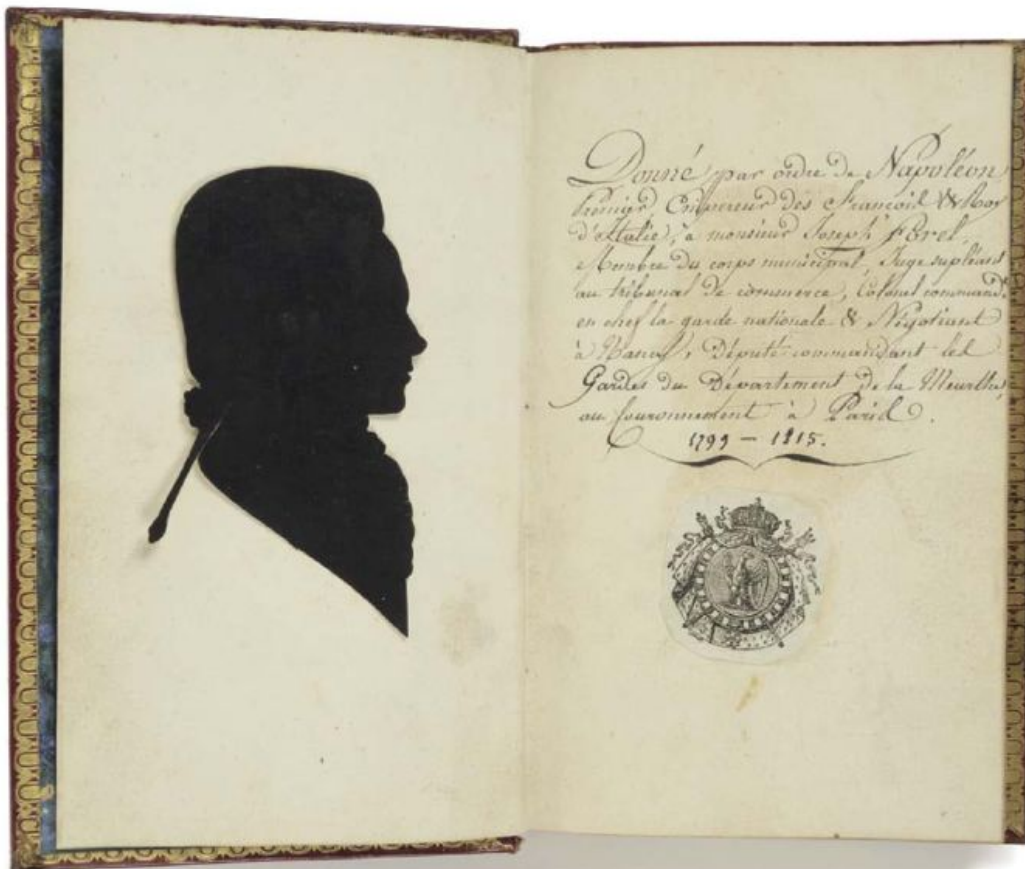 Donné par ordre de Napoléon
Premier, Empereur des François & Roy
d'Italie, à monsieur Joseph Forel,
Membre du corps municipal, Juge supléant
au tribunal de commerce, Colonel command.t
en chef la garde nationale & Négotiant
à Nancy, Député commandant les
Gardes du Département de la Meurthe,
au Couronnement à Paris.
1799 - 1815.